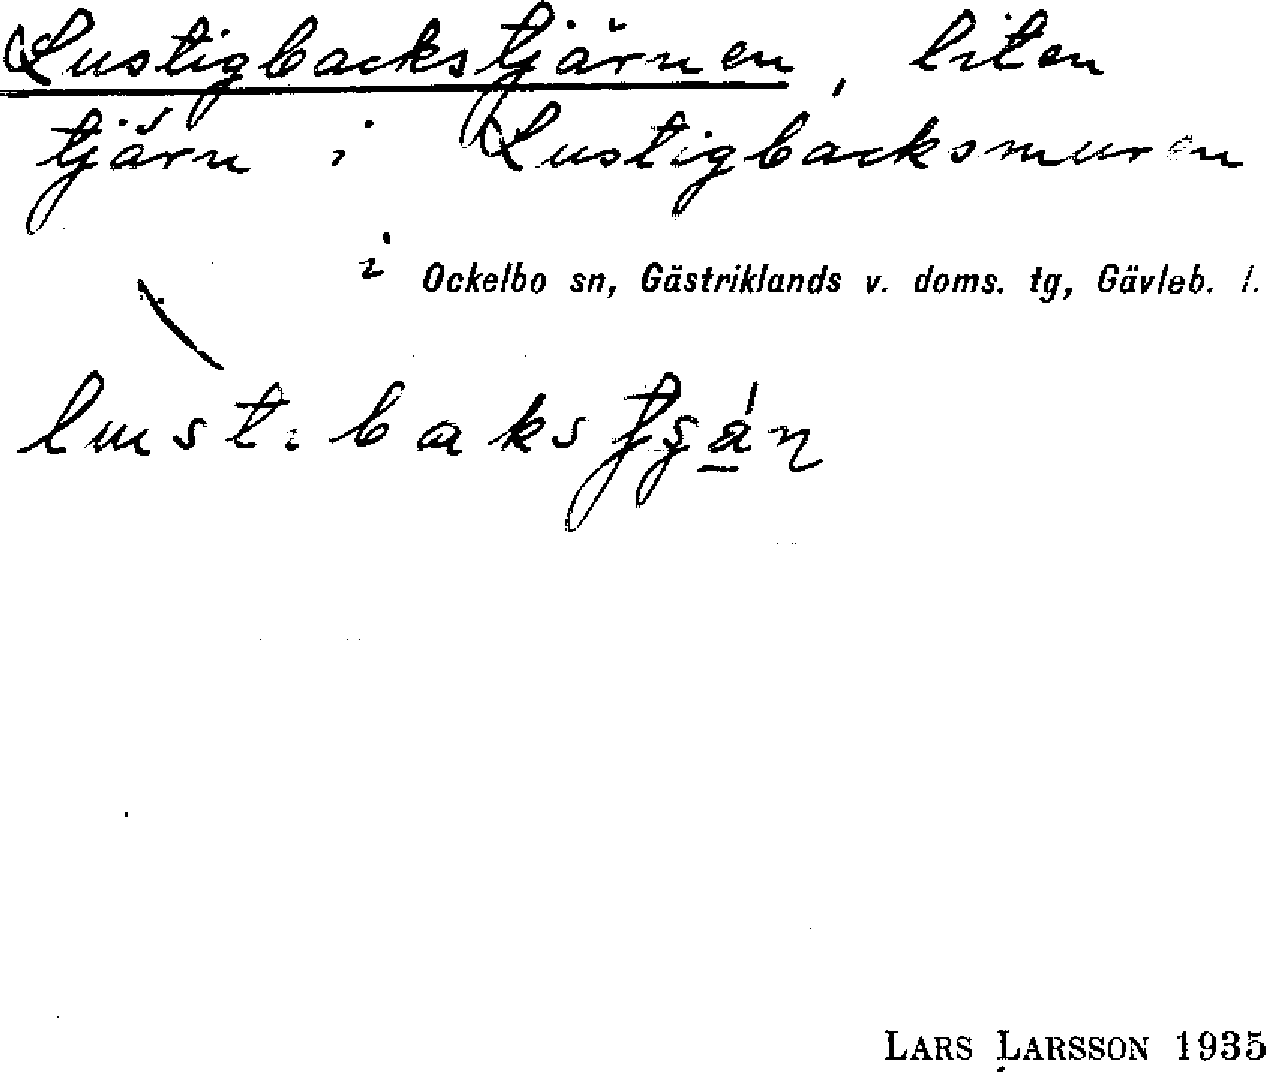 Lustigbackstjärnen, liten
tjärn i Lustigbacksmuren
i Ockelbo sn, Gästriklands v. doms. tg, Gävleb. l.
LARS LARSSON 1935